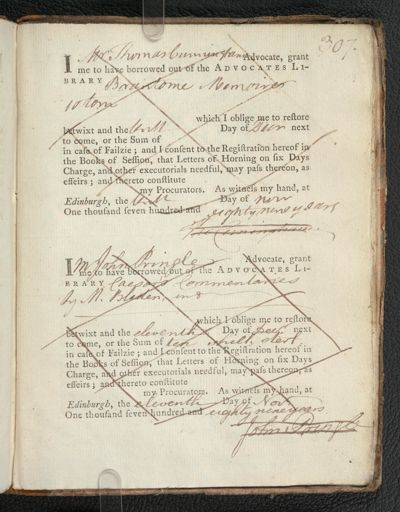 307.
I Mr Thomas Cunningham Advocate, grant
me to have borrowed out of the ADVOCATES LI-
BRARY Brantome Memoires
10 tom
which I oblige me to restore
betwixt and the Day of next
to come, or the Sum of
in case of Failzie; and I consent to the Registration hereof in
the Books of Session, that Letters of Horning on six Days
Charge, and other executorials needful, may pass thereon, as
effeirs; and thereto constitute
my Procurators. As witness my hand, at
Edinburgh, the Day of Nov
One thousand seven hundred and eighty nine years
Cuninghame
I Mr John Pringle Advocate, grant
me to have borrowed out of the ADVOCATES LI-
BRARY Caesars Commentaries
by M. Bladen, in 8
which I oblige me to restore
betwixt and the eleventh Day of Dec next
to come, or the Sum of ten sterl
in case of Failzie; and I consent to the Registration hereof in
the Books of Session, that Letters of Horning on six Days
Charge, and other executorials needful, may pass thereon, as
effeirs; and thereto constitute
my Procurators. As witness my hand, at
Edinburgh, the eleventh Day of Nov
One thousand seven hundred and eighty nine years
John Pringle